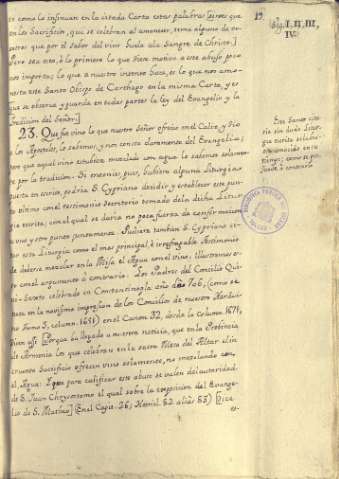 se como la insinuan en la citada Carta estas palabras [Dizes que
en los Sacrificios, que se celebran al amanecer, tema alguno de no-
sotros que por el sabor del vino huela a la Sangre de Christo.]
Pero sea esto, à lo primero lo que hiere motivo a este abuso poco
nos importa; lo que a nuestro intento hace, es lo que nos amo-
nesta este Santo Obispo de Carthago en la misma Carta, y es
que se observe y guarde en todas partes la ley del Evangelio y la
tradicion del Señor.]
23. Que fue vino lo que nuestro Señor ofrecio en el Caliz, y dio
a los Apostoles, lo sabemos, y nos consta claramente del Evangelio;
pero que aquel vino estubiese mezclado con agua lo sabemos solamen-
te por la tradicion. Si entonces, pues, hubiera alguna Liturgia
puesta en escrito, podria S. Cypriano decidir y establecer este pun-
to ultimo con el testimonio de
la dicha Litur-
gia escrita; con el qual se daria no poca fuerza de confirmacion
a uno y otro punto juntamente. Pudiera tambien S. Cypriano ci-
tar esta Liturgia como el mas principal, è irrefragable testimonio
de deberse mezclar en la Missa el Agua con el vino;
con el argumento à contrario. Los Padres del Concilio Qui-
ni-Sexto celebrado en Constantinopla año de 706, (como se
nota en la novissima impression de los Concilios de nuestro Harduino
Tomo 3, column. 1651) en el Canon 32, desde la Column. 1671,
dicen assi [Porque ha llegado a nuestra noticia, que en la Provincia
de Armenia los que celebran en la sacra Mesa del Altar el in-
cruento Sacrificio ofrecen vino solamente, no mezclando con
el, Agua: I que para calificar este abuso se valen del autoridad
de S. Juan Chrysostomo el qual sobre la exposicion del Evange-
lio de S. Matheo] (En el Cap. 26; Homil. 82 aliàs 83) [Dice
12.
I. II. III,
IV.
Este Santo ci-
ta sin duda Litur-
gia escrita si
entonces en su
tiempo; como se pu-
à contrario
BIBLIOTECA PUBLICA